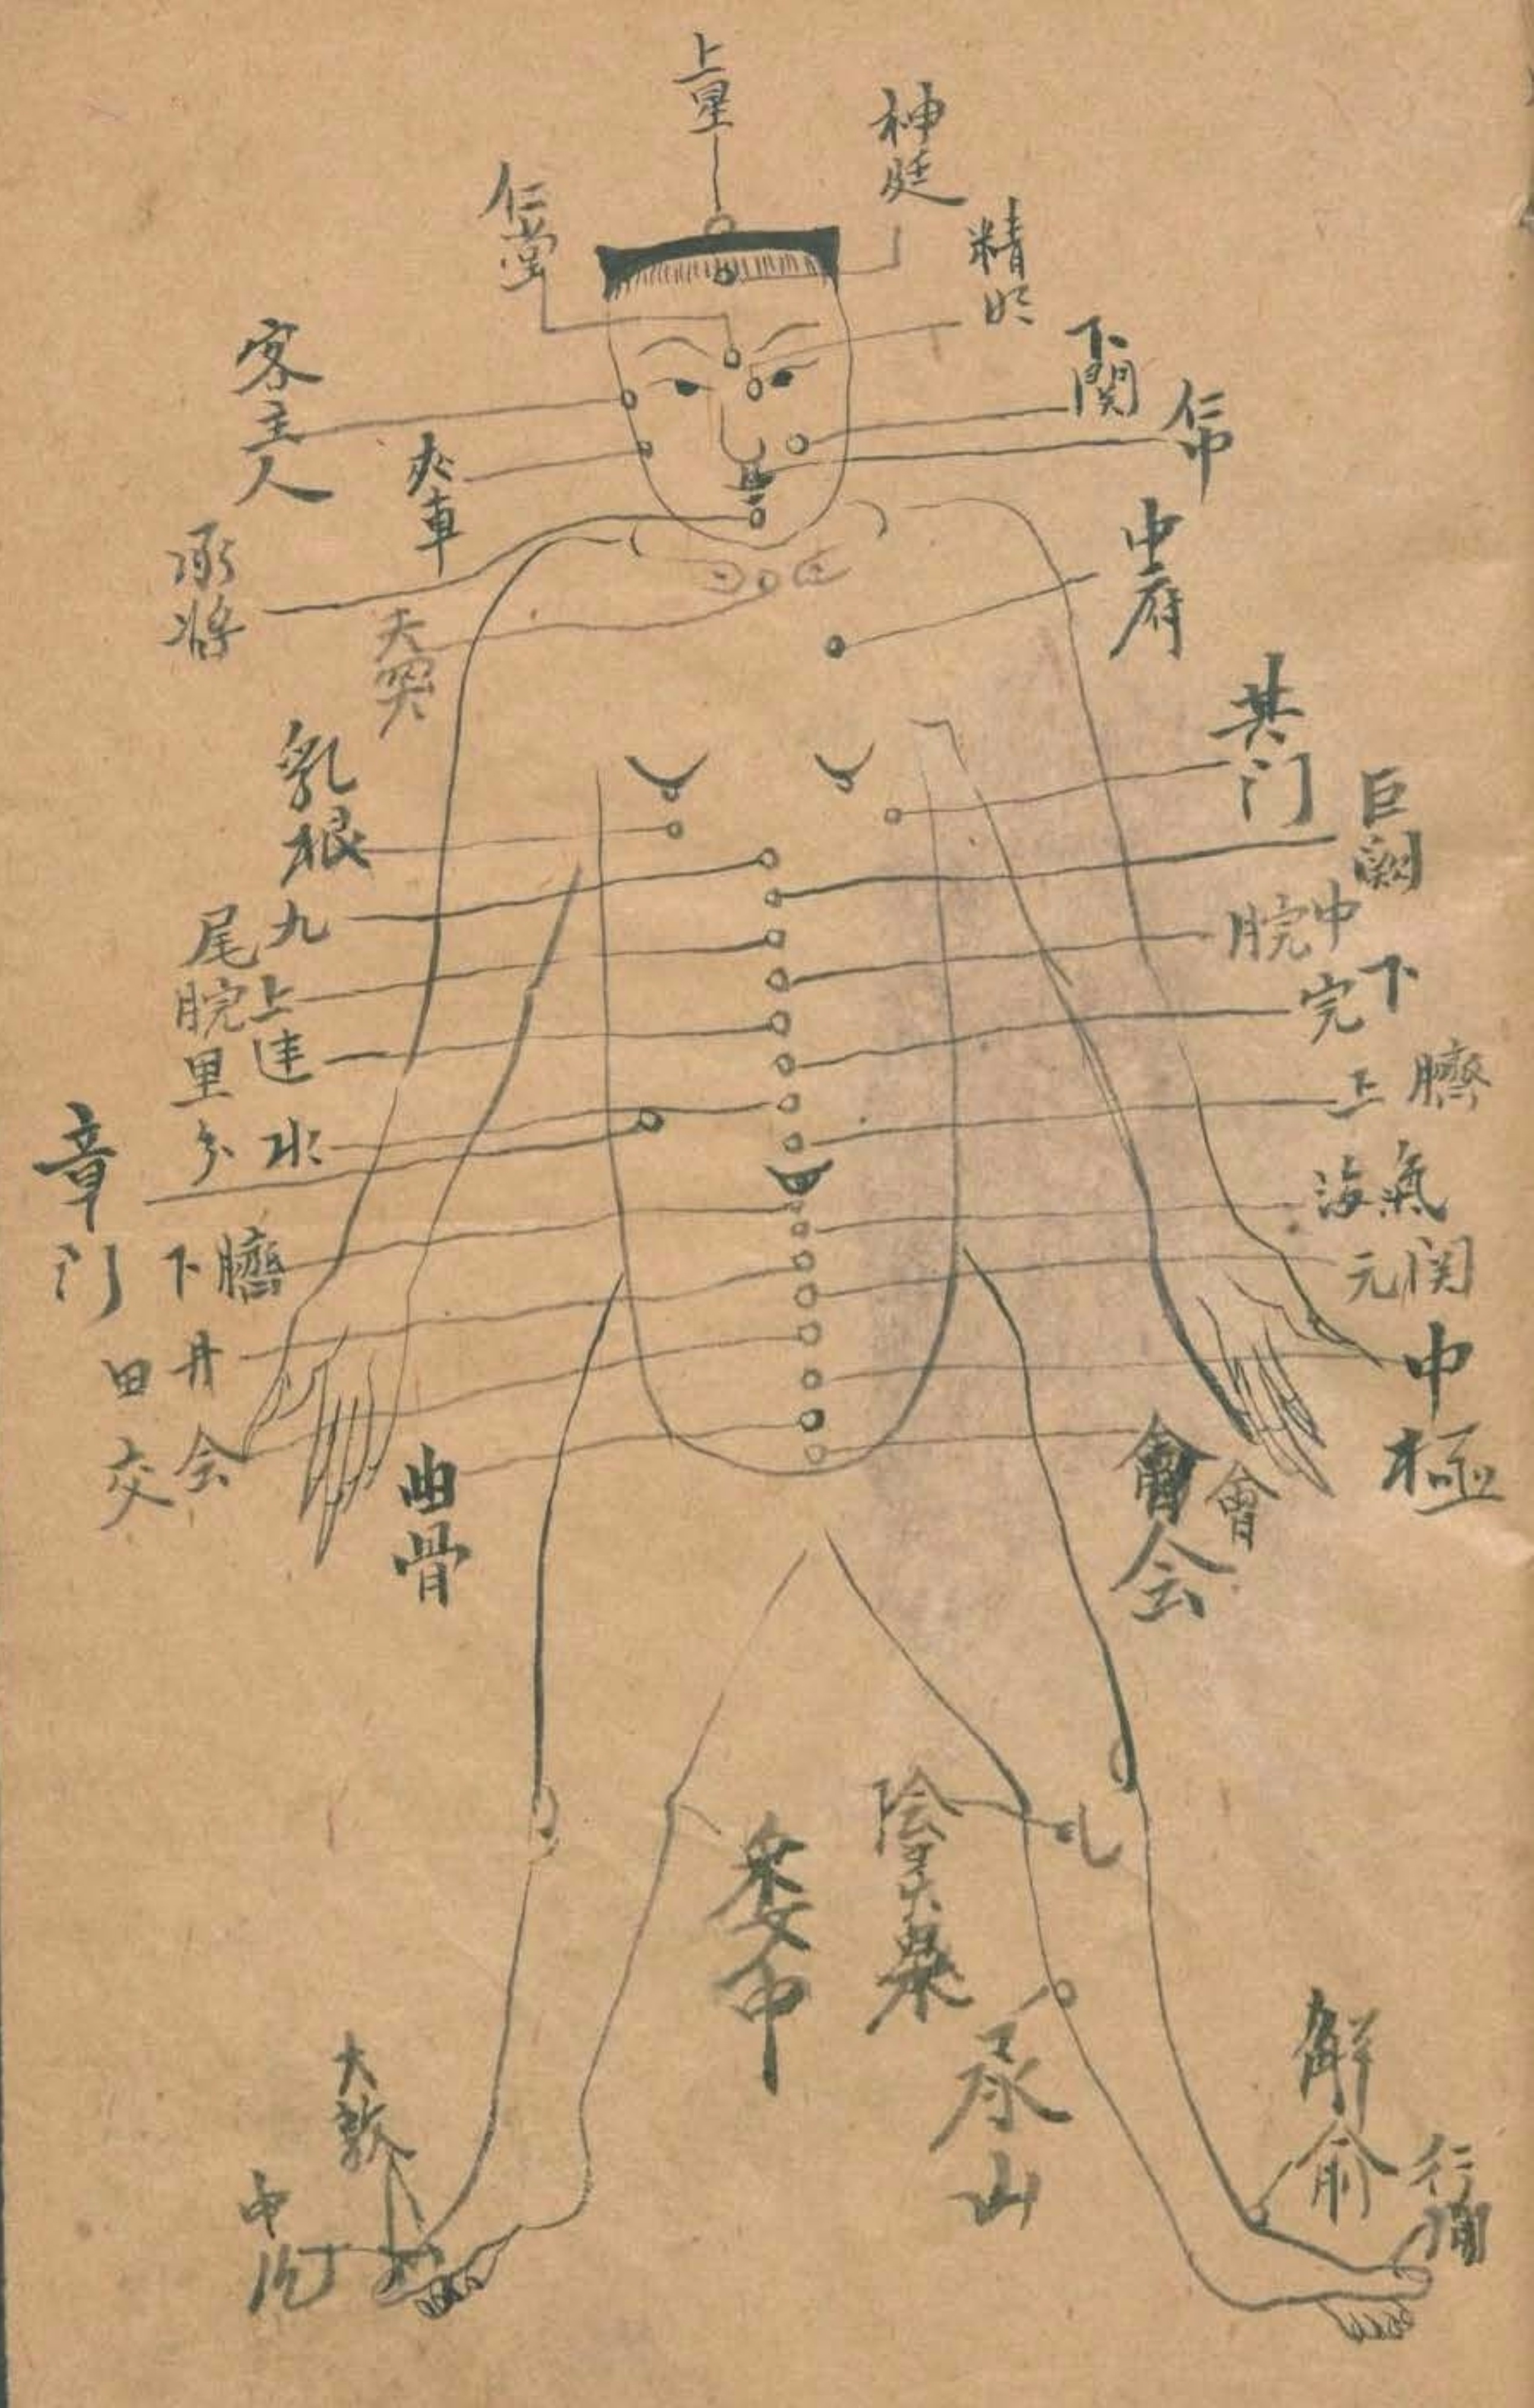 上星
神廷
仁堂
精明
客主人
下関
仁中
夾車
承将
中府
天突
乳根
其门
巨闕
九尾
中脘
上脘
下完
建里
臍上
水分
章门
氣海
臍下
関元
井田
中極
会交
曲骨
會會
会
委中
陰
承山
解俞
行间
大敦
中